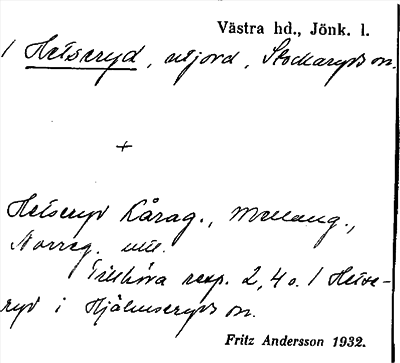 Västra hd., Jönk. l.
1 Hetseryd, utjord, Stockaryds sn.
+
Hetseryd Kårag., Mellang.,
Norreg. utv.
Tillhöra resp. 2, 4 o. 1 Hetse-
ryd i Hjälmseryds sn.
Fritz Andersson 1932.